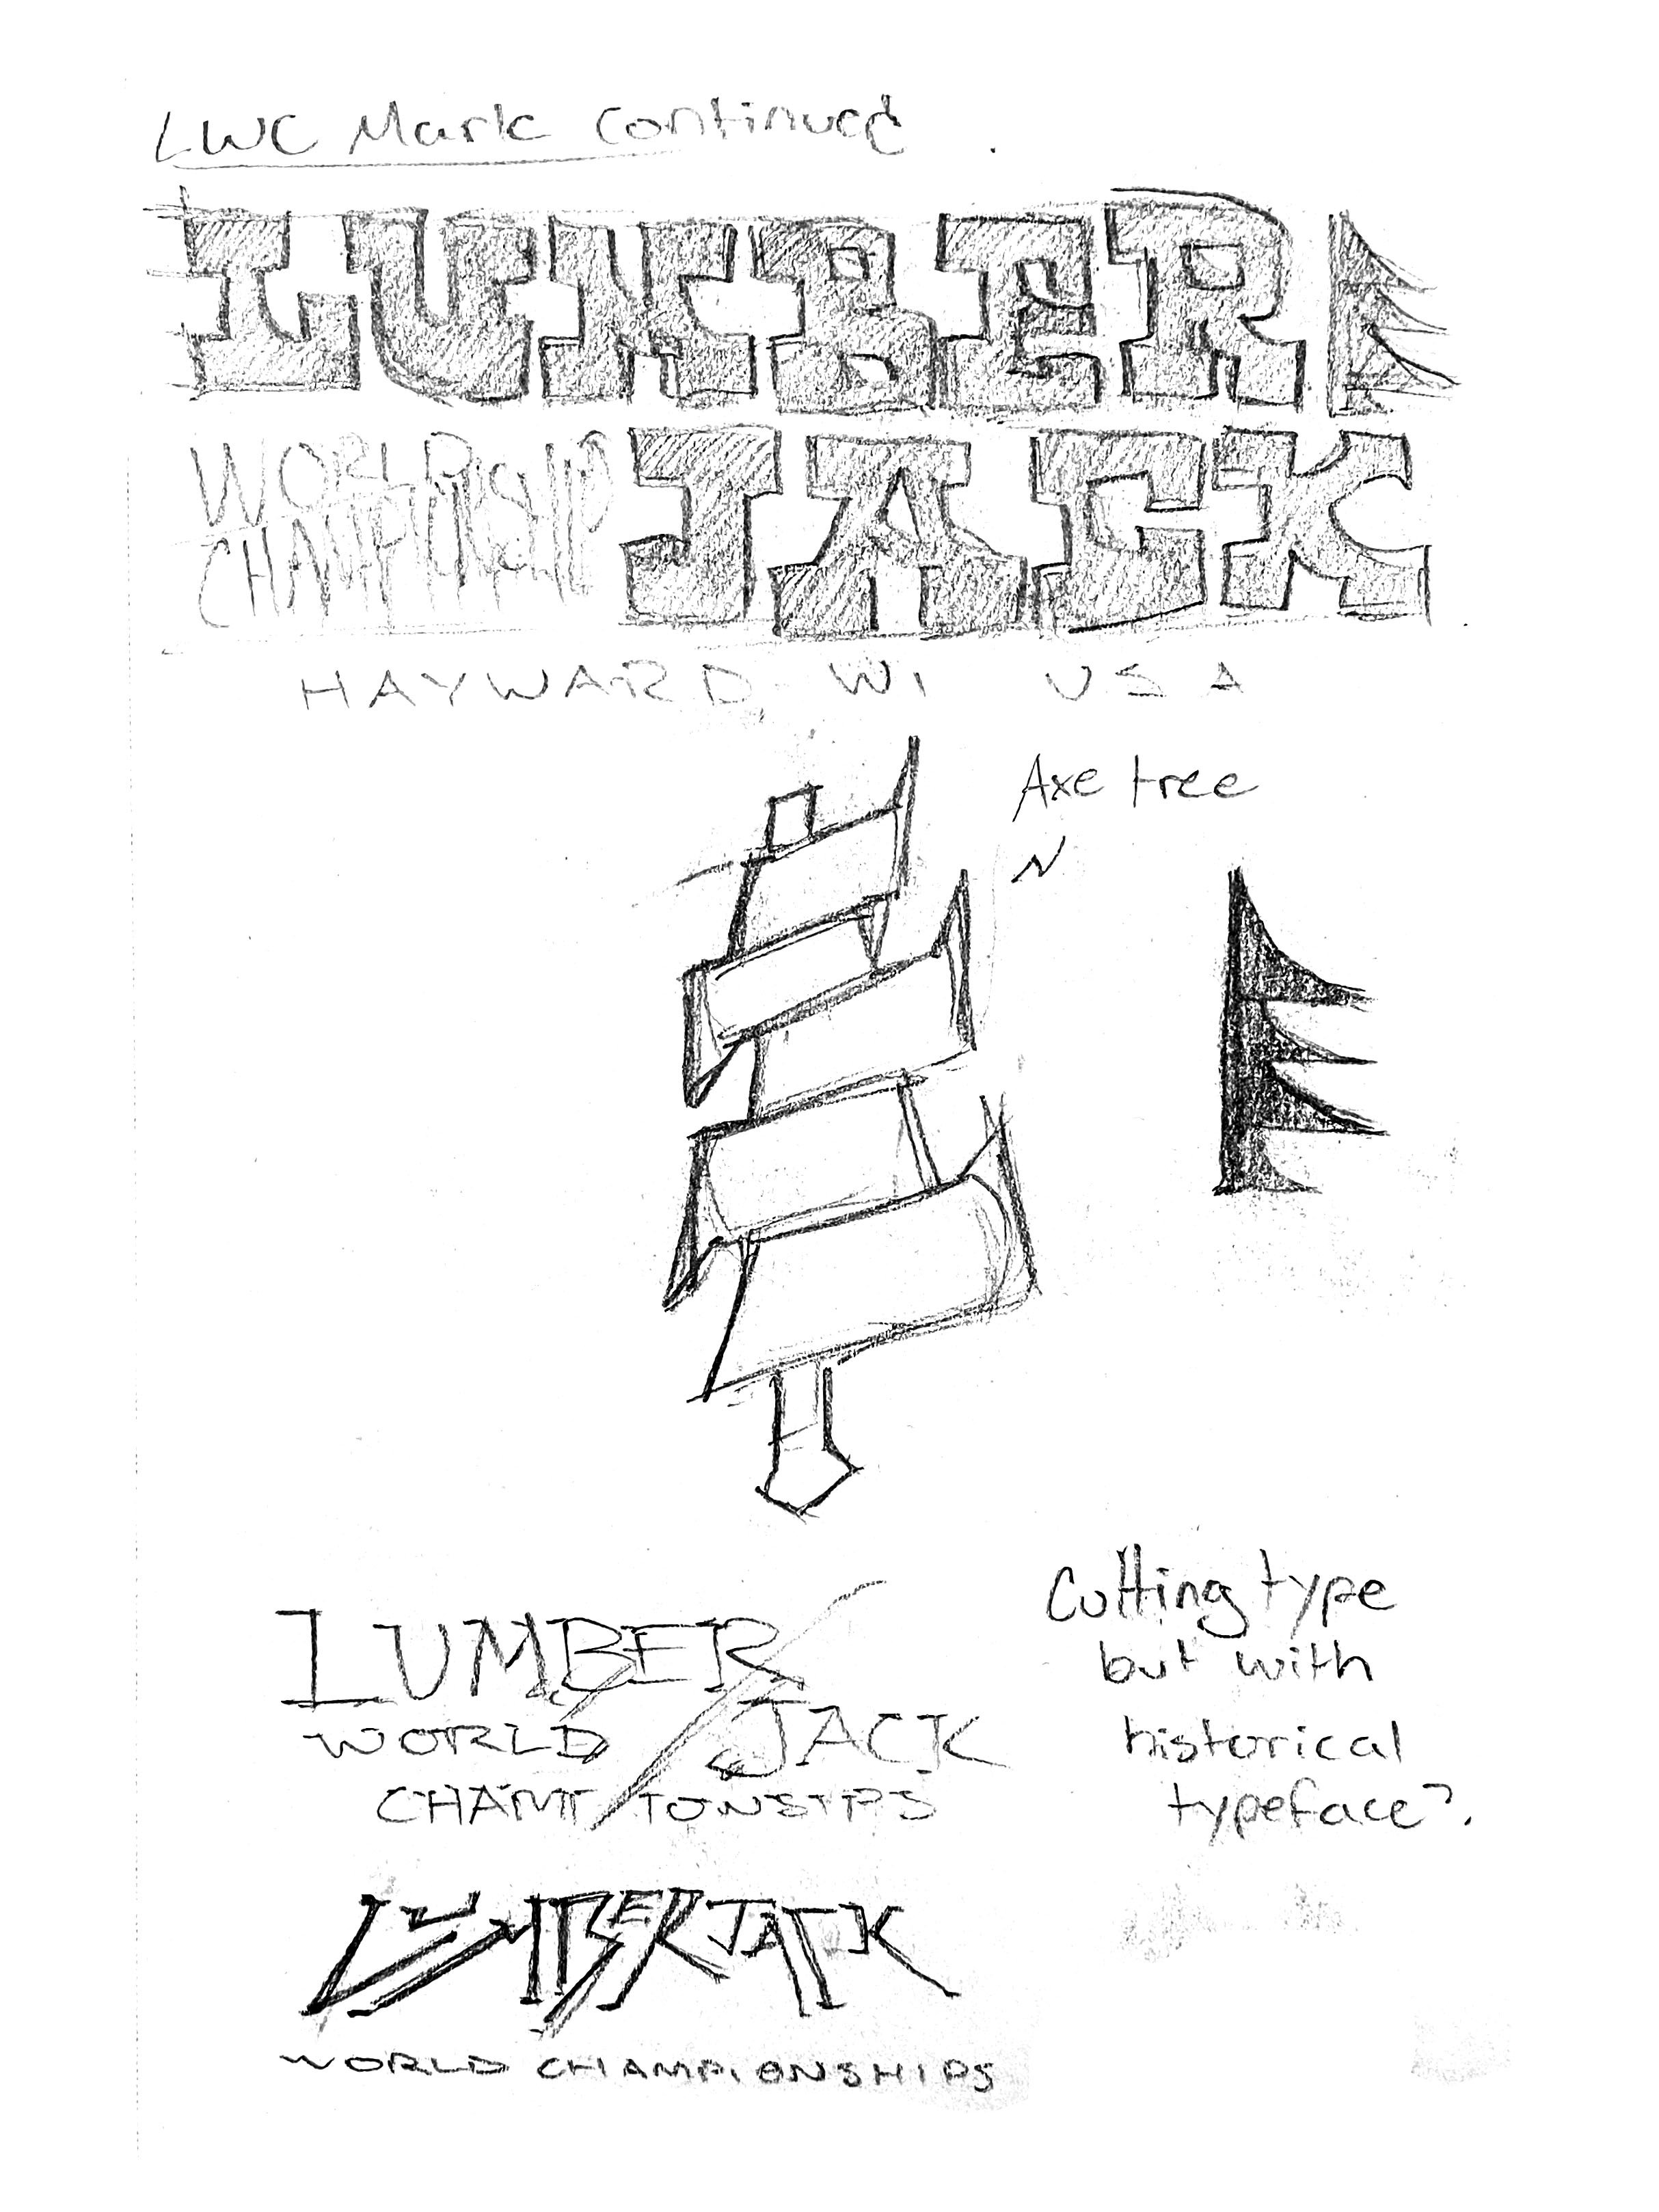 LWC Mark continued
LUMBER
WORLD
CHAMPIONSHIP
JACK
HAYWARD, WI USA
Axe tree
LUMBER
JACK
WORLD
CHAMPIONSIPS
Cutting type
but with
historical
typeface?.
LUMBERJACK
WORLD CHAMPIONSHIPS